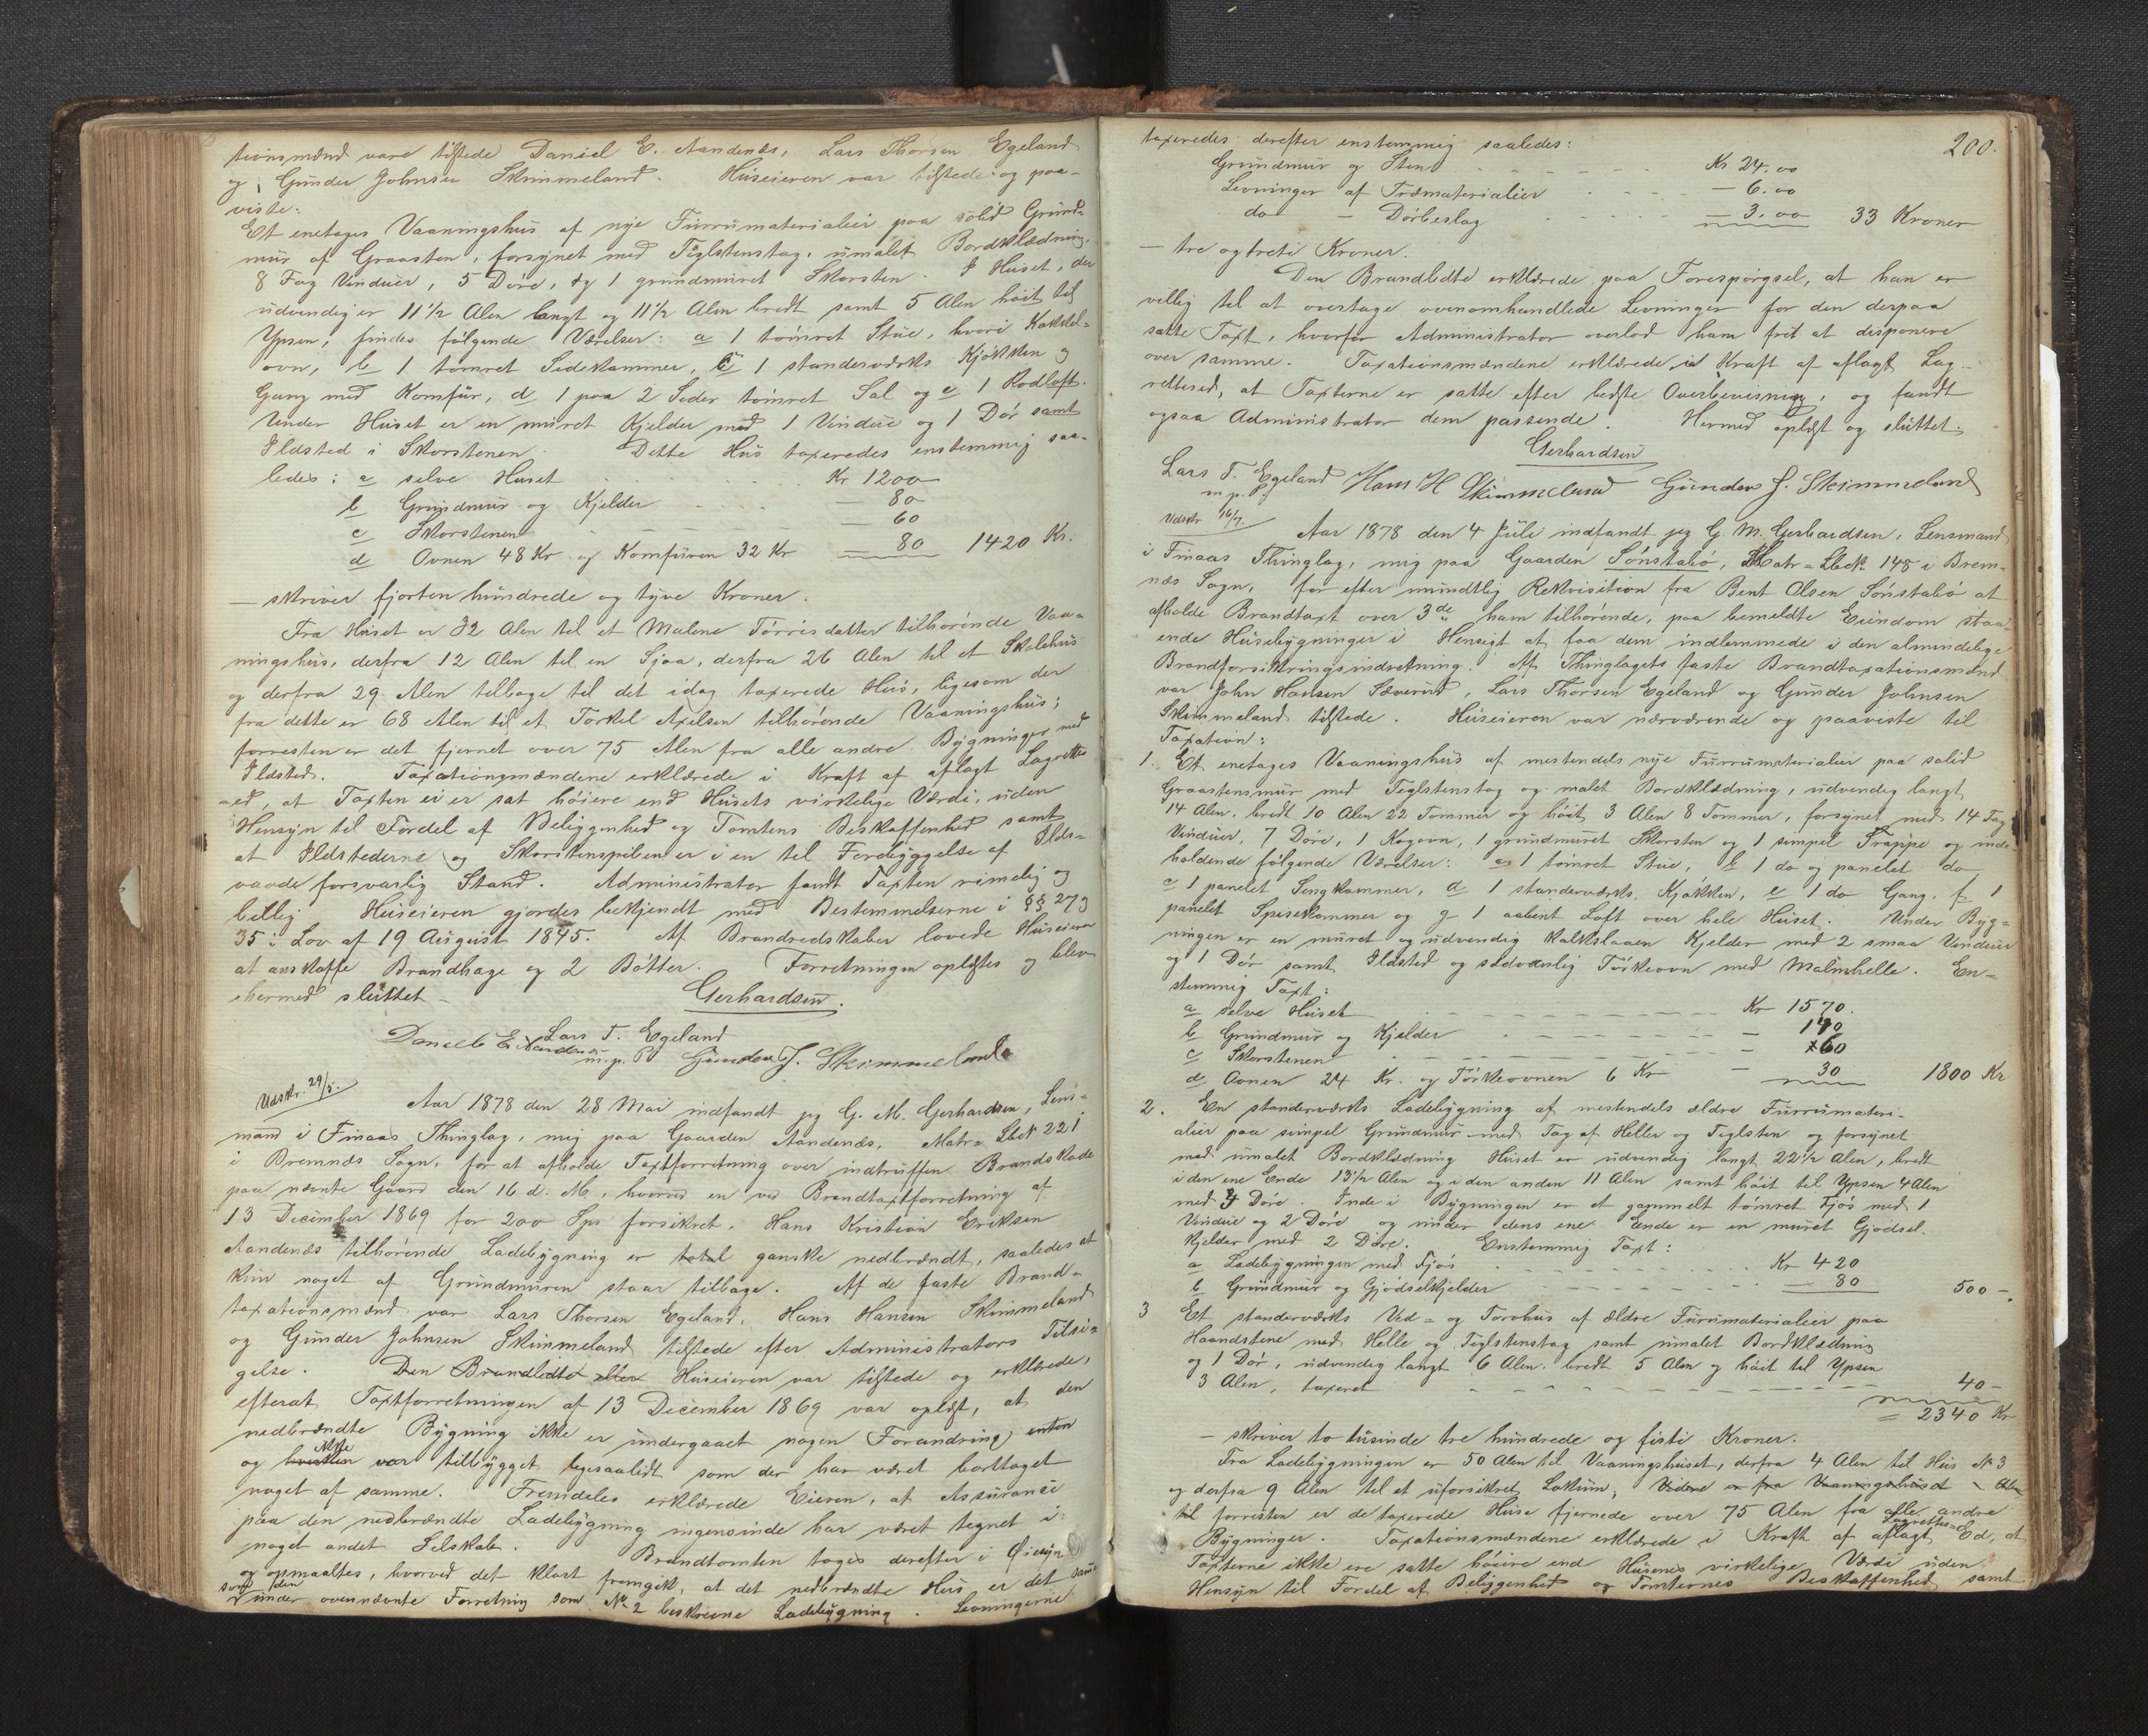 tionsmænd vare tilstede Daniel E. Aandenæs, Lars Thorsen Egeland
og Gunder Johnsen Skimmeland. Huseieren var tilstede og paa-
viste:
Et enetages Vaaningshus af nye Furrumaterialier paa solid Grund-
mur af Graasten, forsynet med Teglstenstag, umalet Bordklædning,
8 Fag Vinduer, 5 Døre, og 1 grundmuret Skorsten. I Huset, der
udvendig er 11 1/2 Alen langt og 11 1/2 Alen bredt samt 5 Alen høit til
Ypsen, findes følgende Værelser: a 1 tømret Stue, hvori Kakkel-
ovn, b 1 tømret Sidekammer, c 1 standerværks Kjøkken og
Gang med Komfur, d 1 paa 2 Sider tømret Sal og e 1 Rodloft.
Under Huset er en muret Kjelder med 1 Vindue og 1 Dør samt
Ildsted i Skorstenen. Dette Hus taxeredes enstemmig saa-
ledes: a selve Huset Kr 1200
b Grundmur og Kjelder — 80
c Skorstenen — 60
d Ovnen 48 Kr og Komfuren 32 Kr 80 1420 Kr.
— skriver fjorten hundrede og tyve Kroner.
Fra Huset er 32 Alen til et Malene Tørrisdatter tilhørende Vaa-
ningshus, derfra 12 Alen til en Sjøa, derfra 26 Alen til et Skolehus
og derfra 29 Alen tilbage til det idag taxerede Hus, ligesom der
fra dette er 68 Alen til et Torkel Axelsen tilhørende Vaaningshus;
forresten er det fjernet over 75 Alen fra alle andre Bygninger med
Ildsted. Taxationsmændene erklærede i Kraft af aflagt Lagrettes
ed, at Taxten ei er sat høiere end Husets virkelige Værdi, uden
Hensyn til Fordel af Beliggenhed og Tomtens Beskaffenhed samt
at Ildstederne og Skorstenspiben er i en til Forebyggelse af Ilds-
vaade forsvarlig Stand. Administrator fandt Taxten rimelig og
billig Huseieren gjordes bekjendt med Bestemmelserne i §§ 27 og
35 i Lov af 19 August 1845. Af Brandredskaber lovede Huseieren
at anskaffe Brandhage og 2 Bøtter. Forretningen oplæstes og blev
hermed sluttet — Gerhardsen.
Lars T. Egeland
Daniel E Aandenæs m. p. P Gunder J. Skimmeland
Udskr. 29/5.
Aar 1878 den 28 Mai indfandt jeg G. M. Gerhardsen, Lens-
mand i Finaas Thinglag, mig paa Gaarden Aandenæs, Matr= Lbck 221
i Bremnæs Sogn, for at afholde Taxtforretning over indtruffen Brandskade
paa nævnte Gaard den 16 d. M., hvorved en ved Brandtaxtforretning af
13 December 1869 for 200 Sps forsikret, Hans Kristian Eriksen
Aandenæs tilhørende Ladebygning er total ganske nedbrændt, saaledes at
kun noget af Grundmuren staar tilbage. Af de faste Brand-
taxationsmænd var Lars Thorsen Egeland, Hans Hansen Skimmeland
og Gunder Johnsen Skimmeland tilstede efter Administrators Tilsi-
gelse. Den Brandlidte eller Huseieren var tilstede og erklærede,
efterat Taxtforretningen af 13 December 1869 var oplæst, at den
nedbrændte Bygning ikke er undergaaet nogen Forandring enten
og hverken var ikke tilbygget ligesaalidt som der har været borttaget
noget af samme. Fremdeles erklærede Eieren, at Assurance
paa den nedbrændte Ladebygning ingensinde har været tegnet i
noget andet Selskab. Brandtomten toges derefter i Øiesyn
og opmaaltes, hvorved det klart fremgik, at det nedbrændte Hus er det samme
som den under ovennævnte Forretning som No 2 beskrevne Ladebygning. Levningerne
200.
taxeredes derefter enstemmig saaledes:
Grundmur og Sten Kr. 24.00
Levninger af Træmaterialier — 6.00
do — Dørbeslag — 3.00 33 Kroner
— tre og treti Kroner.
Den Brandlidte erklærede paa Forespørgsel, at han er
villig til at overtage ovenomhandlede Levninger for den derpaa
satte Taxt, hvorfor Administrator overlod ham frit at disponere
over samme. Taxationsmændene erklærede i Kraft af aflagt Lag-
rettesed, at Taxterne er satte efter bedste Overbevisning, og fandt
ogsaa Administrator dem passende. Hermed oplæst og sluttet.
Gerhardsen
Lars T. Egeland Hans H Skimmeland Gunder J. Skimmeland
m. p. P
Udskr 16/7.
Aar 1878 den 4 Juli indfandt jeg G. M. Gerhardsen, Lensmand
i Finaas Thinglag, mig paa Gaarden Sønstabø, Matr= Lbck 148 i Brem-
næs Sogn, for efter mundtlig Rekvisition fra Bent Olsen Sønstabø at
afholde Brandtaxt over 3de ham tilhørende, paa bemeldte Eiendom staa-
ende Husebygninger i Hensigt at faa dem indlemmede i den almindelige
Brandforsikringsindretning. Af Thinglagets faste Brandtaxationsmænd
var John Hansen Sæverud, Lars Thorsen Egeland og Gunder Johnsen
Skimmeland tilstede. Huseieren var nærværende og paaviste til
Taxation:
1. Et enetages Vaaningshus af mestendels nye Furrumaterialier paa solid
Graastensmur med Teglstenstag og malet Bordklædning, udvendig langt
14 Alen, bredt 10 Alen 22 Tommer og høit 3 Alen 8 Tommer, forsynet med 14 Fag
Vinduer, 7 Døre, 1 Kogovn, 1 grundmuret Skorsten og 1 simpel Trappe og inde-
holdende følgende Værelser: a 1 tømret Stue, b 1 do og panelet do
c 1 panelet Sengkammer, d 1 standerværks Kjøkken, e 1 do Gang, f 1
panelet Spisekammer og g 1 aabent Loft over hele Huset. Under Byg-
ningen er en muret og udvendig kalkslaaen Kjelder med 2 smaa Vinduer
og 1 Dør samt Ildsted og sædvanlig Tørkeovn med Malmhelle. En-
stemmig Taxt:
a selve Huset Kr 1570.
b Grundmur og Kjelder — 140
c Skorstenen — 60
d Ovnen 24 Kr. og Tørkeovnen 6 Kr — 30 1800 Kr
2. En standerværks Ladebygning af mestendels ældre Furrumateri-
alier paa simpel Grundmur med Tag af Heller og Teglsten og forsynet
med umalet Bordklædning Huset er udvendig langt 22 1/2 Alen, bredt
i den ene Ende 13 1/2 Alen og i den anden 11 Alen samt høit til Ypsen 4 Alen
med 4 Døre. Inde i Bygningen er et gammelt tømret Fjøs med 1
Vindue og 2 Døre og under dens ene Ende er en muret Gjødsel-
kjelder med 2 Døre. Enstemmig Taxt:
a Ladebygningen med Fjøs Kr 420
b Grundmur og Gjødselkjelder — 80 500 —.
3 Et standerværks Ved= og Torvhus af ældre Furrumaterialier paa
Haandstene med Helle og Teglstenstag samt umalet Bordklædning
og 1 Dør, udvendig langt 6 Alen, bredt 5 Alen og høit til Ypsen
3 Alen, taxeret 40 —
= 2340 Kr
— skriver to tusinde tre hundrede og firti Kroner.
Fra Ladebygningen er 50 Alen til Vaaningshuset, derfra 4 Alen til Hus No 3
og derfra 9 Alen til et uforsikret Lokum; Videre er fra Vaaningshuset Alen
til forresten er de taxerede Huse fjernede over 75 Alen fra alle andre
Bygninger. Taxationsmændene erklærede i Kraft af aflagt Lagrettes Ed, at
Taxterne ikke ere satte høiere end Husenes virkelige Værdi uden
Hensyn til Fordel af Beliggenhed og Tomternes Beskaffenhed samt